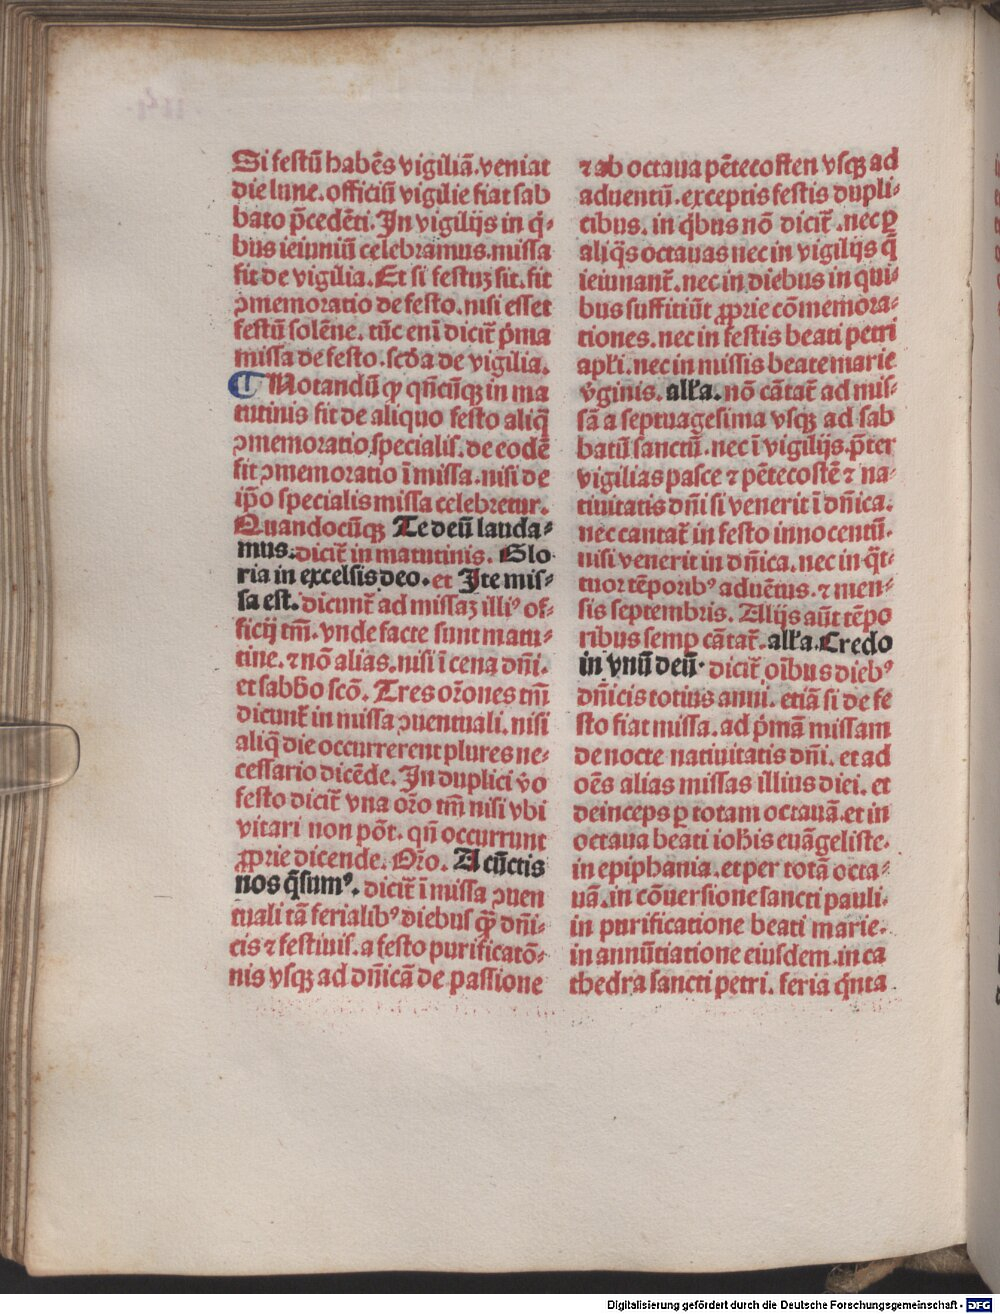 Si festū habēs vigiliā. veniat
die lune. officiū vigilie fiat sab
bato p̄cedēti. In vigilijs in q̇-
bus ieiuniū celebramus. missa
fit de vigilia. Et si festuꝫ sit. fit
ꝯmemoratio de festo. nisi esset
festū solēne. tūc eni dicit̄ ṗma
missa de festo. scd̄a de vigilia.
¶ Notandū ꝙ qn̄cūqꝫ in ma
tutinis fit de aliquo festo aliq̄
ꝯmemoratio specialis. de eodē
fit ꝯmemoratio ī missa. nisi de
ip̄o specialis missa celebretur.
Quandocūqꝫ Te deū lauda-
mus. dicit̄ in matutinis. Glo
ria in excelsis deo. et Ite mis-
sa est. dicunt̄ ad missaꝫ illiꝰ of-
ficij tm̄. vnde facte sunt matu-
tine. ⁊ nō alias. nisi ī cena dn̄i.
et sabb̄o scō. Tres or̄ones tm̄
dicunt̄ in missa ꝯuentuali. nisi
aliq̄ die occurrerent plures ne-
cessario dicēde. In duplici v̄o
festo dicit̄ vna or̄o tm̄ nisi vbi
vitari non pōt. qn̄ occurrunt
ꝓprie dicende. Or̄o. A cūctis
nos q̄sumꝰ. dicit̄ ī missa ꝯuen
tuali tā ferialibꝰ diebus q̄ꝫ dn̄i-
cis ⁊ festiuis. a festo purificatō-
nis vsqꝫ ad dn̄icā de passione
⁊ ab octaua pētecosten vsqꝫ ad
aduentū. exceptis festis dupli-
cibus. in q̇bus nō dicit̄. nec ꝑ
aliq̇s octauas nec in vigilijs q̄
ieiunant̄. nec in diebus in qui-
bus suffitiūt ꝓprie cōmemora-
tiones. nec in festis beati petri
apl̄i. nec in missis beate marie
v̇ginis. all̄a. nō cātat̄ ad mis-
sā a septuagesima vsqꝫ ad sab
batū sanctū. nec ī vigilijs. p̄ter
vigilias pasce ⁊ pētecostē ⁊ na-
tiuitatis dn̄i si venerit ī dn̄ica.
nec cantat̄ in festo innocentū.
nisi venerit in dn̄ica. nec in q̄t-
tuor tēporibꝰ aduētus. ⁊ men-
sis septembris. Alijs aūt tēpo
ribus semꝑ cātat̄. all̄a. Credo
in vnū deū. dicit̄ oībus diebꝰ
dn̄icis totius anni. etiā si de fe
sto fiat missa. ad ṗmā missam
de nocte natiuitatis dn̄i. et ad
oēs alias missas illius diei. et
deinceps ꝑ totam octauā. et in
octaua beati ioh̄is euāgeliste.
in epiphania. et per totā octa-
uā. in cōuersione sancti pauli.
in purificatione beati marie.
in annūtiatione eiusdem. in ca
thedra sancti petri. feria q̇nta
Digitalisierung gefördert durch die Deutsche Forschungsgemeinschaft - DFG